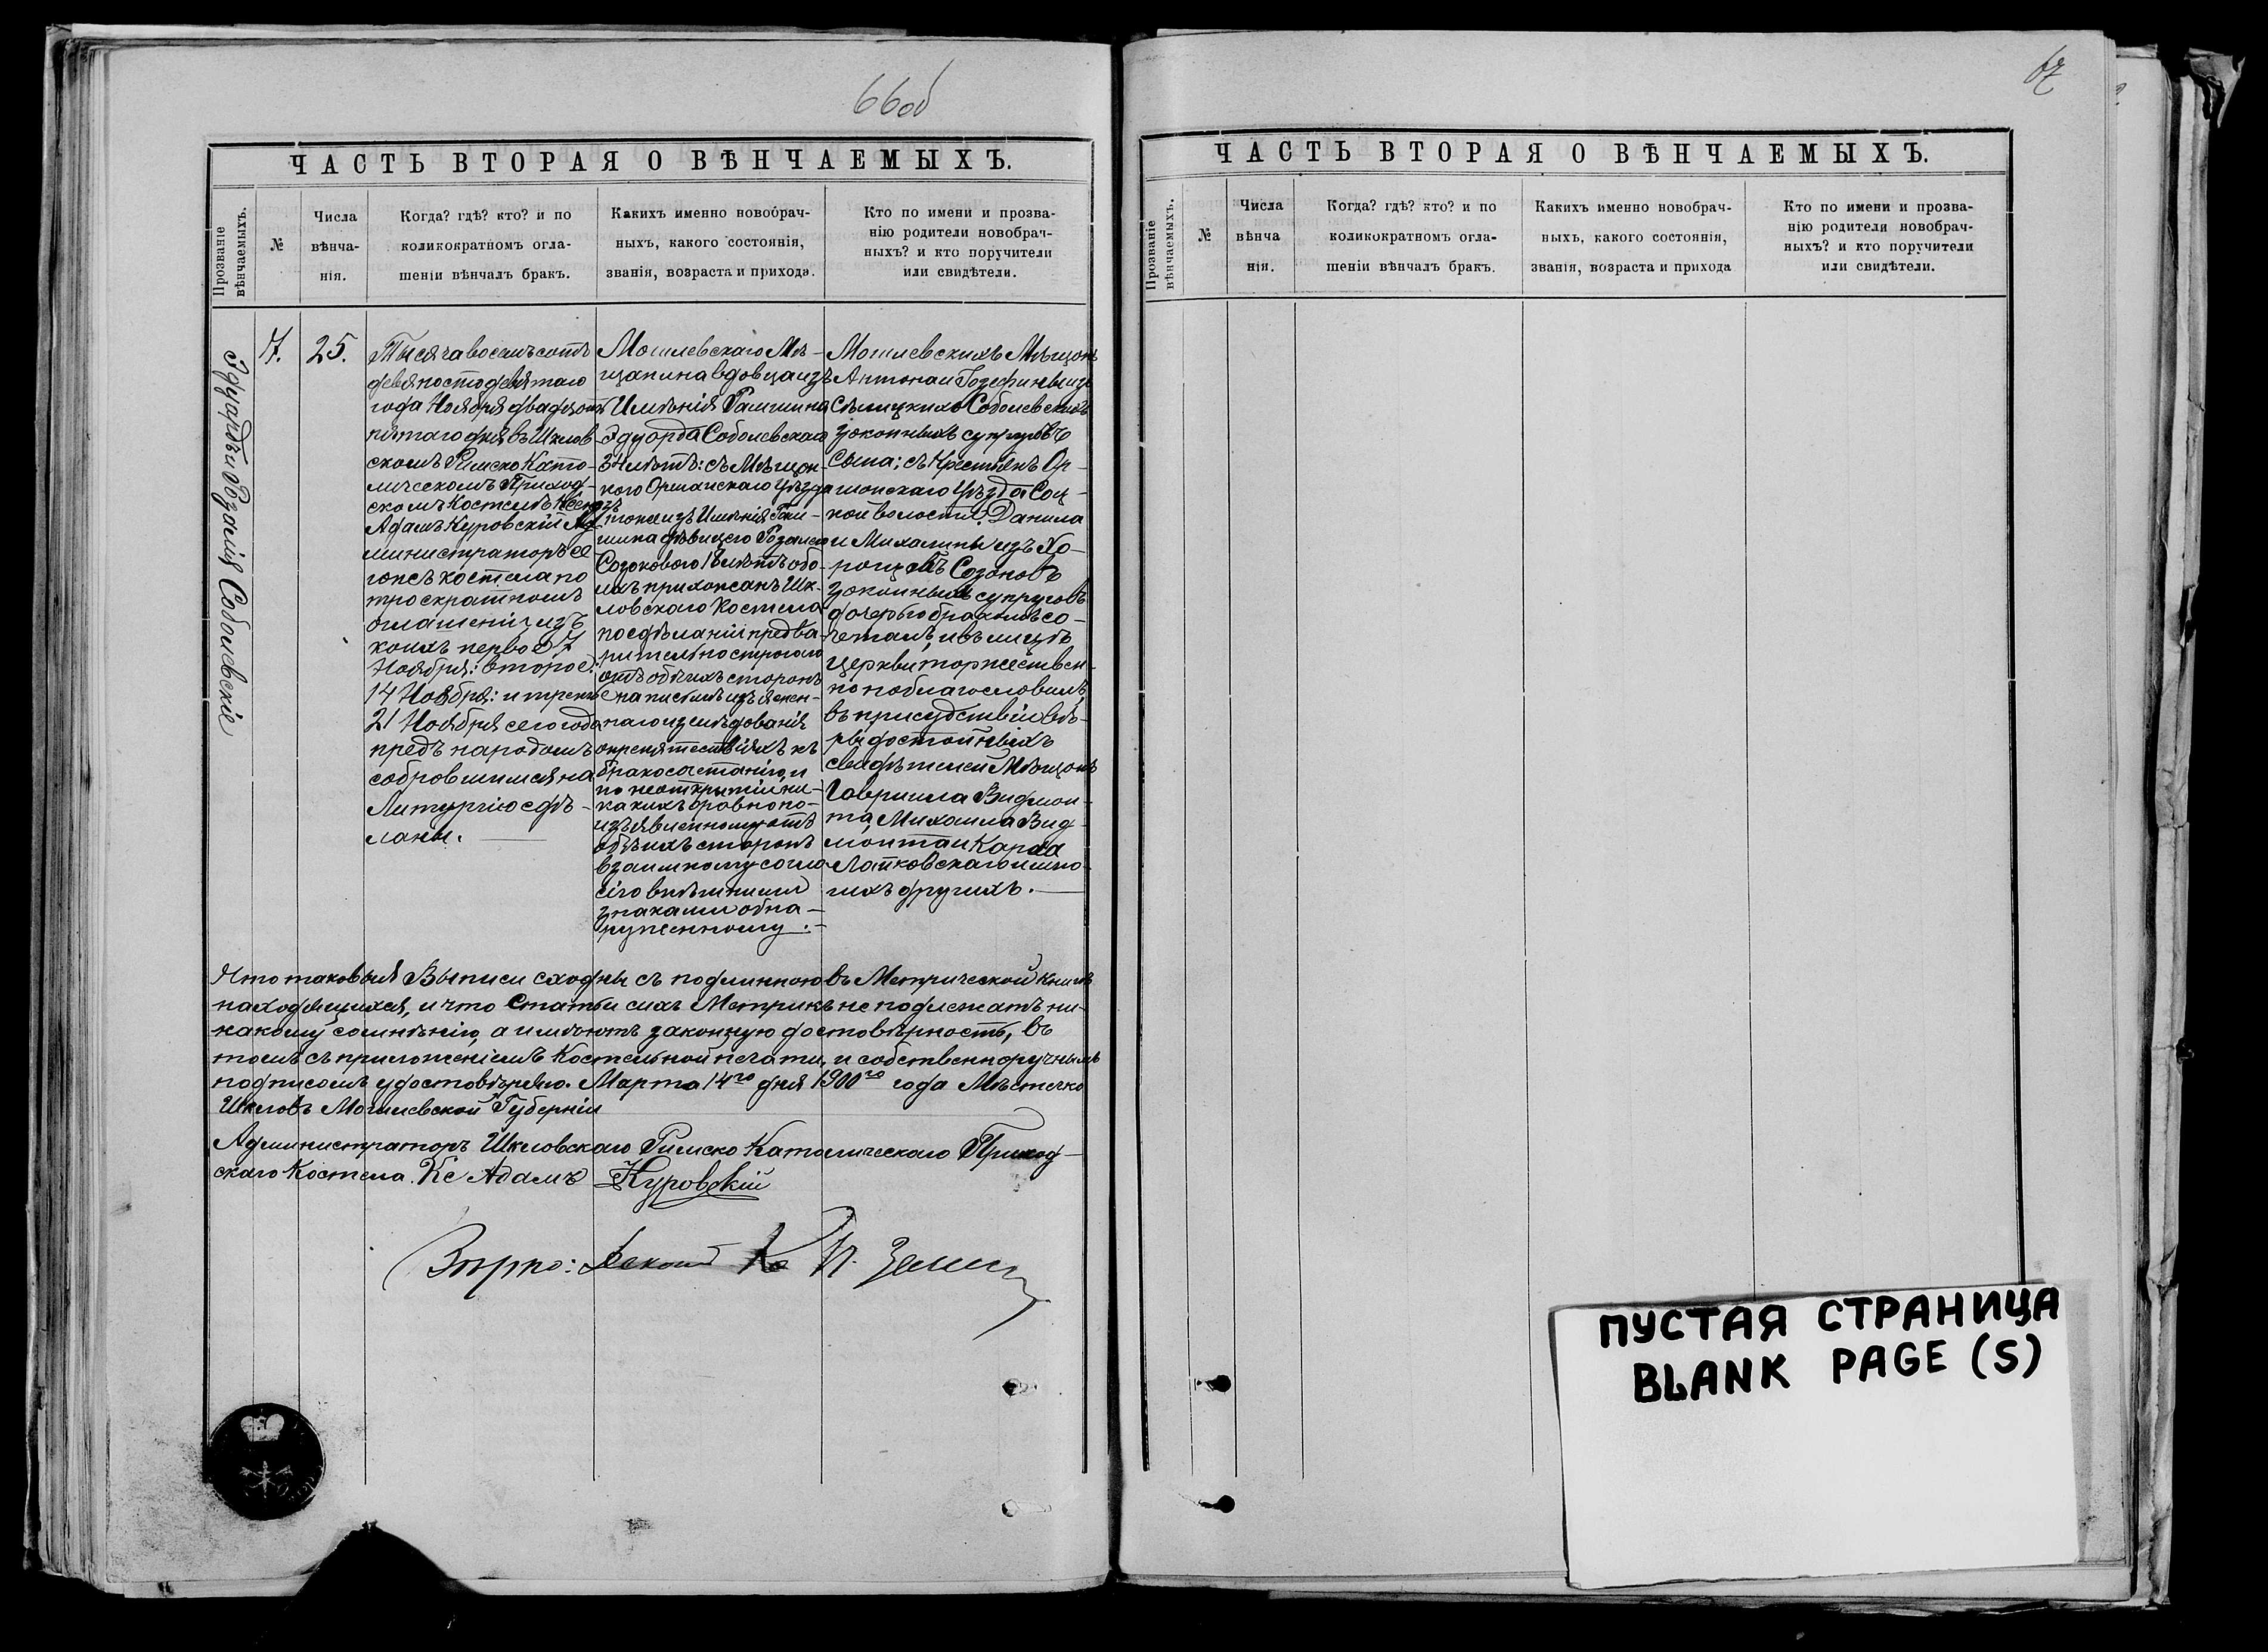 66об
ЧАСТЬ ВТОРАЯ О ВѢНЧАЕМЫХЪ.
Прозваніе вѣнчаемыхъ.
№
Числа
вѣнча-
нія.
Когда? гдѣ? кто? и по
коликократномъ огла-
шеніи вѣнчалъ бракъ.
Какихъ именно новобрач-
ныхъ, какого состоянія,
званія, возраста и прихода.
Кто по имени и прозва-
нію родители новобрач-
ныхъ? и кто поручители
или свидѣтели.
Эдуардъ и Розалія Соболевскіе
7.
25.
Тысяча восемьсотъ
девяносто девятаго
года Ноября двадцать
пятаго дня въ Шклов-
скомъ Римско Като-
лическомъ Приход-
скомъ Костелѣ Ксендзъ
Адамъ Куровскій Ад-
министраторъ се
гожъ костела по
троекратномъ
оглашеніи изъ
коихъ первое 7
Ноября: второе:
14 Ноября: и третіе
21 Ноября сего года
предъ народомъ
собравшимся на
Литургію сдѣ-
ланы.
Могилевскаго Мѣ-
щанина вдовца изъ
Имѣнія Рамшина
Эдуарда Соболевскаго
34 лѣтъ: съ Мѣщан-
кою Оршанскаго Уѣзда
тоже изъ Имѣнія Рам-
шина дѣвицею Розаліею
Созоновою 18 лѣтъ обо-
ихъ прихожанъ Шк-
ловскаго Костела
по сдѣланіи предва-
рительно строгаго
отъ обѣихъ сторонъ
на письмѣ изъясен-
наго изслѣдованія
о препятствіяхъ къ
бракосочетанію, и
по неоткрытіи ни-
какихъ равно по-
изъявленному отъ
обѣихъ сторонъ
взаимному согла-
сію внѣшними
знаками обна-
руженному.
Могилевскихъ Мѣщанъ
Антона и Іозефины изъ
Сѣлицкихъ Соболевскихъ
законныхъ супруговъ
Сына; съ Крестьянъ Ор-
шанскаго Уѣзда
ной волости: Данила
и Михалины изъ Хо-
Созоновъ
законныхъ супруговъ
дочерью бракомъ со-
четалъ, и въ лицѣ
церкви торжествен-
но поблагословилъ,
въ присудствіи вѣ-
рыдостойныхъ
свидѣтелей Мѣщанъ
Гавриила Видмон-
та, Михаила Вид-
монта и Карла
Лапковскаго и мно-
гихъ другихъ.
Что таковыя Выписи сходны съ подлинною въ Метрической книгѣ
находящихся, и что Статьи сихъ Метрикъ не подлежатъ ни-
какому сомнѣнію, а имѣютъ законную достовѣрность, въ
томъ съ приложеніемъ Костельной печати, и собственноручнымъ
подписомъ удостовѣряю. Марта 14го дня 1900го года Мѣстечко
Шкловъ Могилевской Губерніи
Администраторъ Шкловскаго Римско Католическаго Приход-
скаго Костела. Кс Адамъ Куровскій
67
ЧАСТЬ ВТОРАЯ О ВѢНЧАЕМЫХЪ.
Прозваніе вѣнчаемыхъ.
№
Числа
вѣнча
нія.
Когда? гдѣ? кто? и по
коликократномъ огла-
шеніи вѣнчалъ бракъ.
Какихъ именно новобрач-
ныхъ, какого состоянія,
званія, возраста и прихода
Кто по имени и прозва-
нію родители новобрач-
ныхъ? и кто поручители
или свидѣтели.
ПУСТАЯ СТРАНИЦА
BLANK PAGE (S)